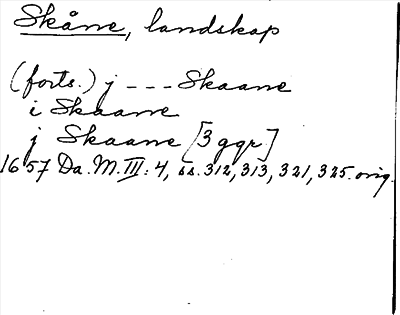 Skåne, landskap
(forts.) j --- Skaane
i Skaane
j Skaane [3 ggr]
1657 Da. M. III: 4, ss. 312, 313, 321, 325. orig.